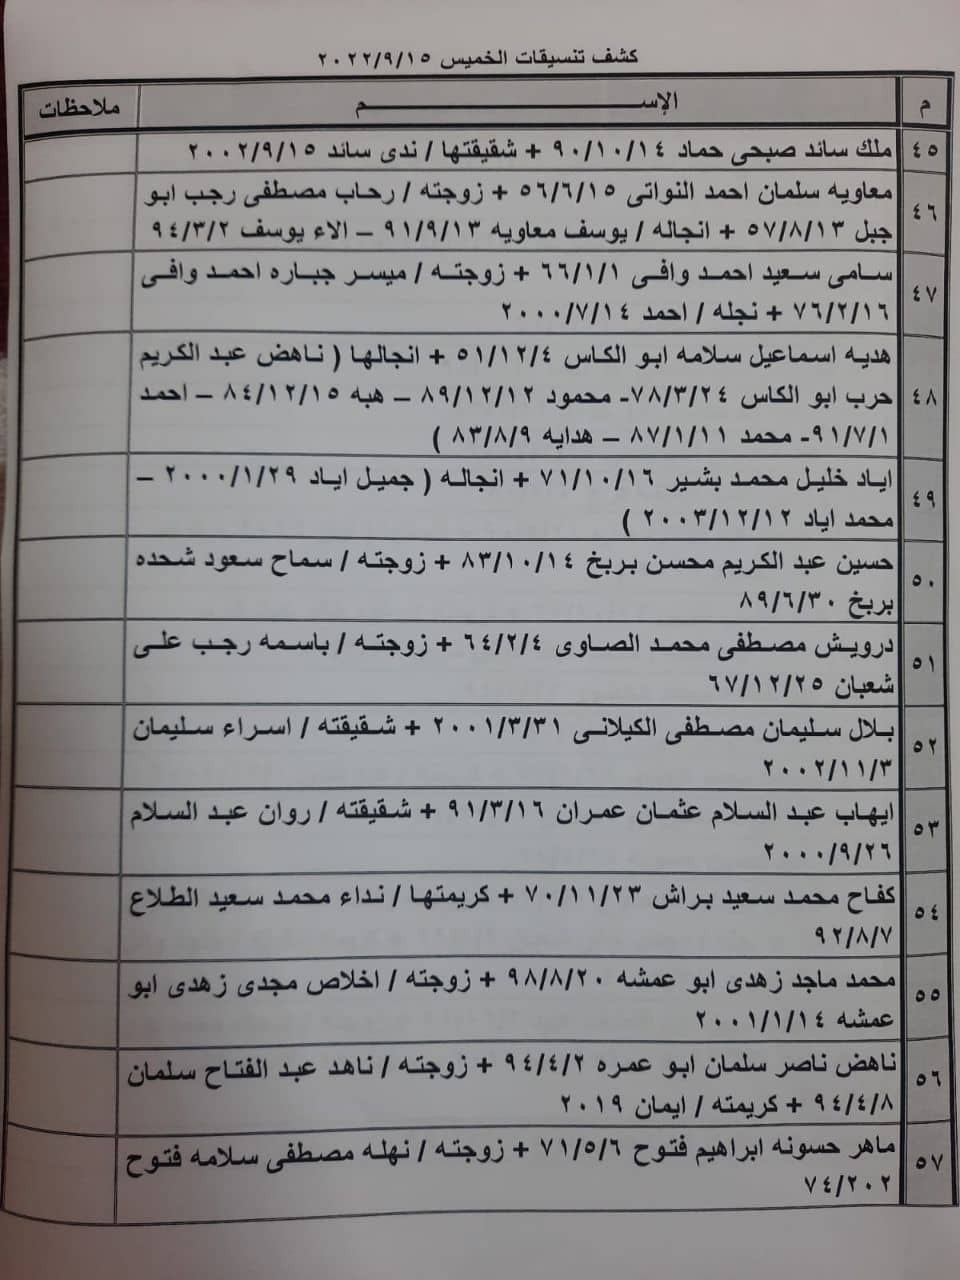 كشف تنسيقات الخميس ٢٠٢٢/٩/١٥
م الإســـــم ملاحظات
٤٥ ملك سائد صبحى حماد ٩٠/١٠/١٤ + شقيقتها / ندى سائد ٢٠٠٢/٩/١٥
معاويه سلمان احمد النواتى ٥٦/٦/١٥ + زوجته / رحاب مصطفى رجب ابو
٤٦
جبل ٥٧/٨/١٣ + انجاله / يوسف معاويه ٩١/٩/١٣ – الاء يوسف ٩٤/٣/٢
سامى سعيد احمد وافى ٦٦/١/١ + زوجته / ميسر جباره احمد وافى
٤٧
٧٦/٢/١٦ + نجله / احمد ٢٠٠٠/٧/١٤
هديه اسماعيل سلامه ابو الكاس ٥١/١٢/٤ + انجالها ( ناهض عبد الكريم
٤٨ حرب ابو الكاس ٧٨/٣/٢٤- محمود ٨٩/١٢/١٢ – هبه ٨٤/١٢/١٥ – احمد
٩١/٧/١- محمد ٨٧/١/١١ – هدايه ٨٣/٨/٩ )
اياد خليل محمد بشير ٧١/١٠/١٦ + انجاله ( جميل اياد ٢٠٠٠/١/٢٩ –
٤٩
محمد اياد ٢٠٠٣/١٢/١٢ )
حسين عبد الكريم محسن بربخ ٨٣/١٠/١٤ + زوجته / سماح سعود شحده
٥٠
بربخ ٨٩/٦/٣٠
درويش مصطفى محمد الصاوى ٦٤/٢/٤ + زوجته / باسمه رجب على
٥١
شعبان ٦٧/١٢/٢٥
بلال سليمان مصطفى الكيلانى ٢٠٠١/٣/٣١ + شقيقته / اسراء سليمان
٥٢
٢٠٠٢/١١/٣
ايهاب عبد السلام عثمان عمران ٩١/٣/١٦ + شقيقته / روان عبد السلام
٥٣
٢٠٠٠/٩/٢٦
كفاح محمد سعيد براش ٧٠/١١/٢٣ + كريمتها / نداء محمد سعيد الطلاع
٥٤
٩٢/٨/٧
محمد ماجد زهدى ابو عمشه ٩٨/٨/٢٠ + زوجته / اخلاص مجدى زهدى ابو
٥٥
عمشه ٢٠٠١/١/١٤
ناهض ناصر سلمان ابو عمره ٩٤/٤/٢ + زوجته / ناهد عبد الفتاح سلمان
٥٦
٩٤/٤/٨ + كريمته / ايمان ٢٠١٩
ماهر حسونه ابراهيم فتوح ٧١/٥/٦ + زوجته / نهله مصطفى سلامه فتوح
٥٧
٧٤/٢٠٢